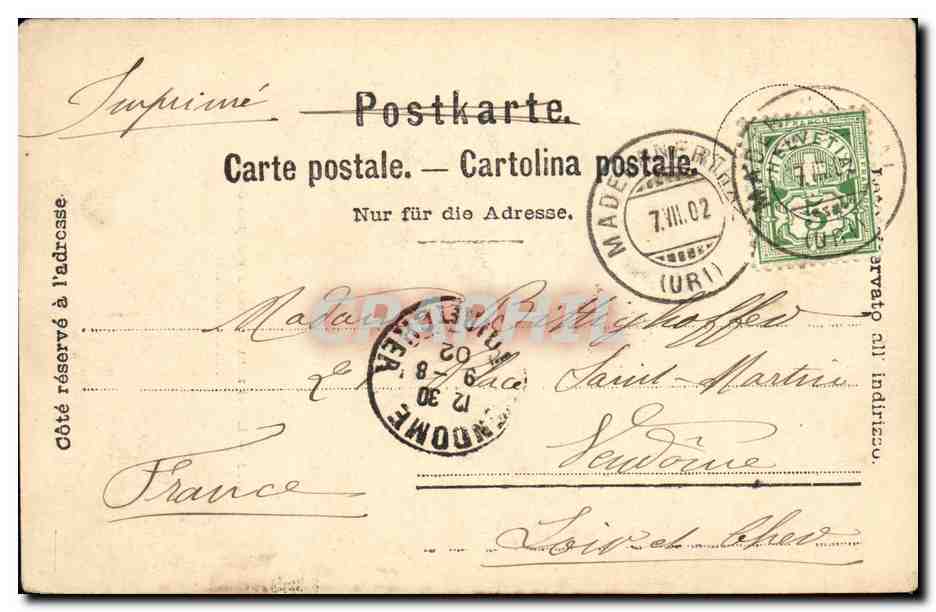 Imprimé
Postkarte.
Carte postale. — Cartolina postale.
Nur für die Adresse.
Côté réservé à l'adresse
all' indirizzo.
MADERANERTHAL
7.VIII.02
(URI)
HELVETIA
FRANCO
5
(URI)
Madame
Place Saint-Martin
Vendôme
France
Loir et Cher
VENDOME
LOIR-ET-CHER
12 30
9 - 8
02